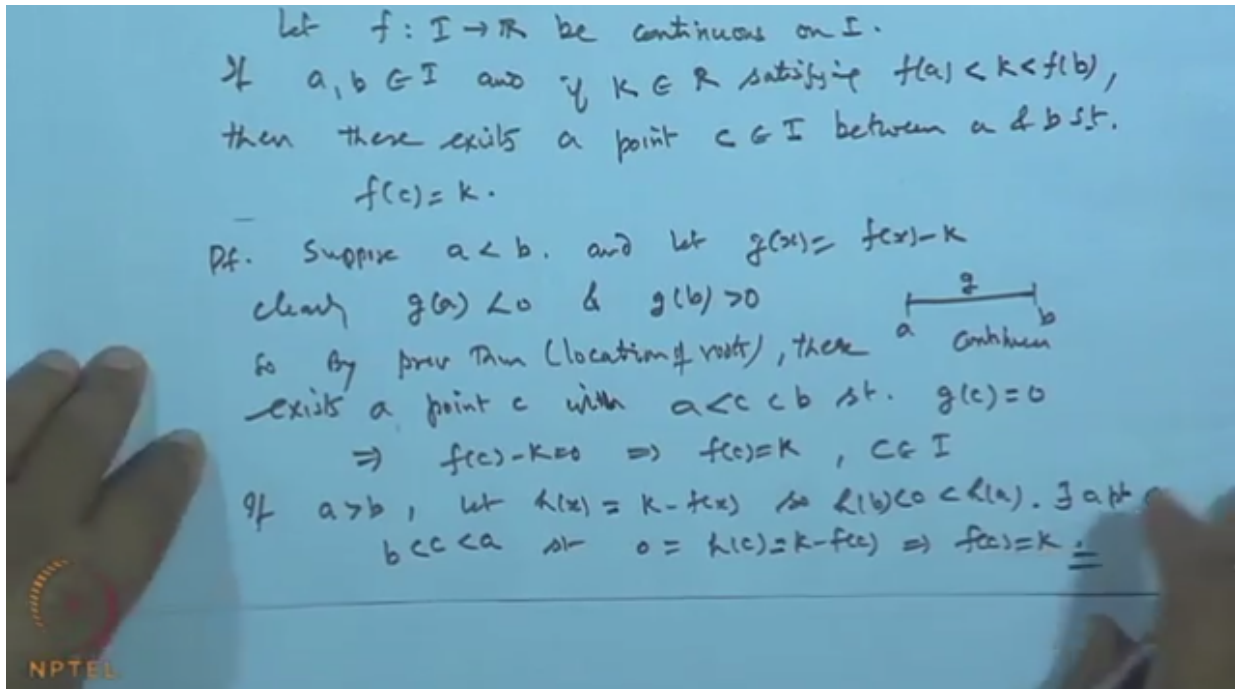 Let f : I → R be continuous on I.
If a, b ∈ I and if K ∈ R satisfying f(a) < K < f(b),
then there exists a point c ∈ I between a & b st.
f(c) = K.
Pf. Suppose a < b. and let g(x) = f(x) - K
clearly g(a) < 0 & g(b) > 0
g
a b
continuous
So By prev Thm (location of roots), there
exists a point c with a < c < b st. g(c) = 0
⇒ f(c) - K = 0 ⇒ f(c) = K , c ∈ I
If a > b, let h(x) = K - f(x) so h(b) < 0 < h(a). ∃ a pt c
b < c < a st 0 = h(c) = K - f(c) ⇒ f(c) = K.
NPTEL